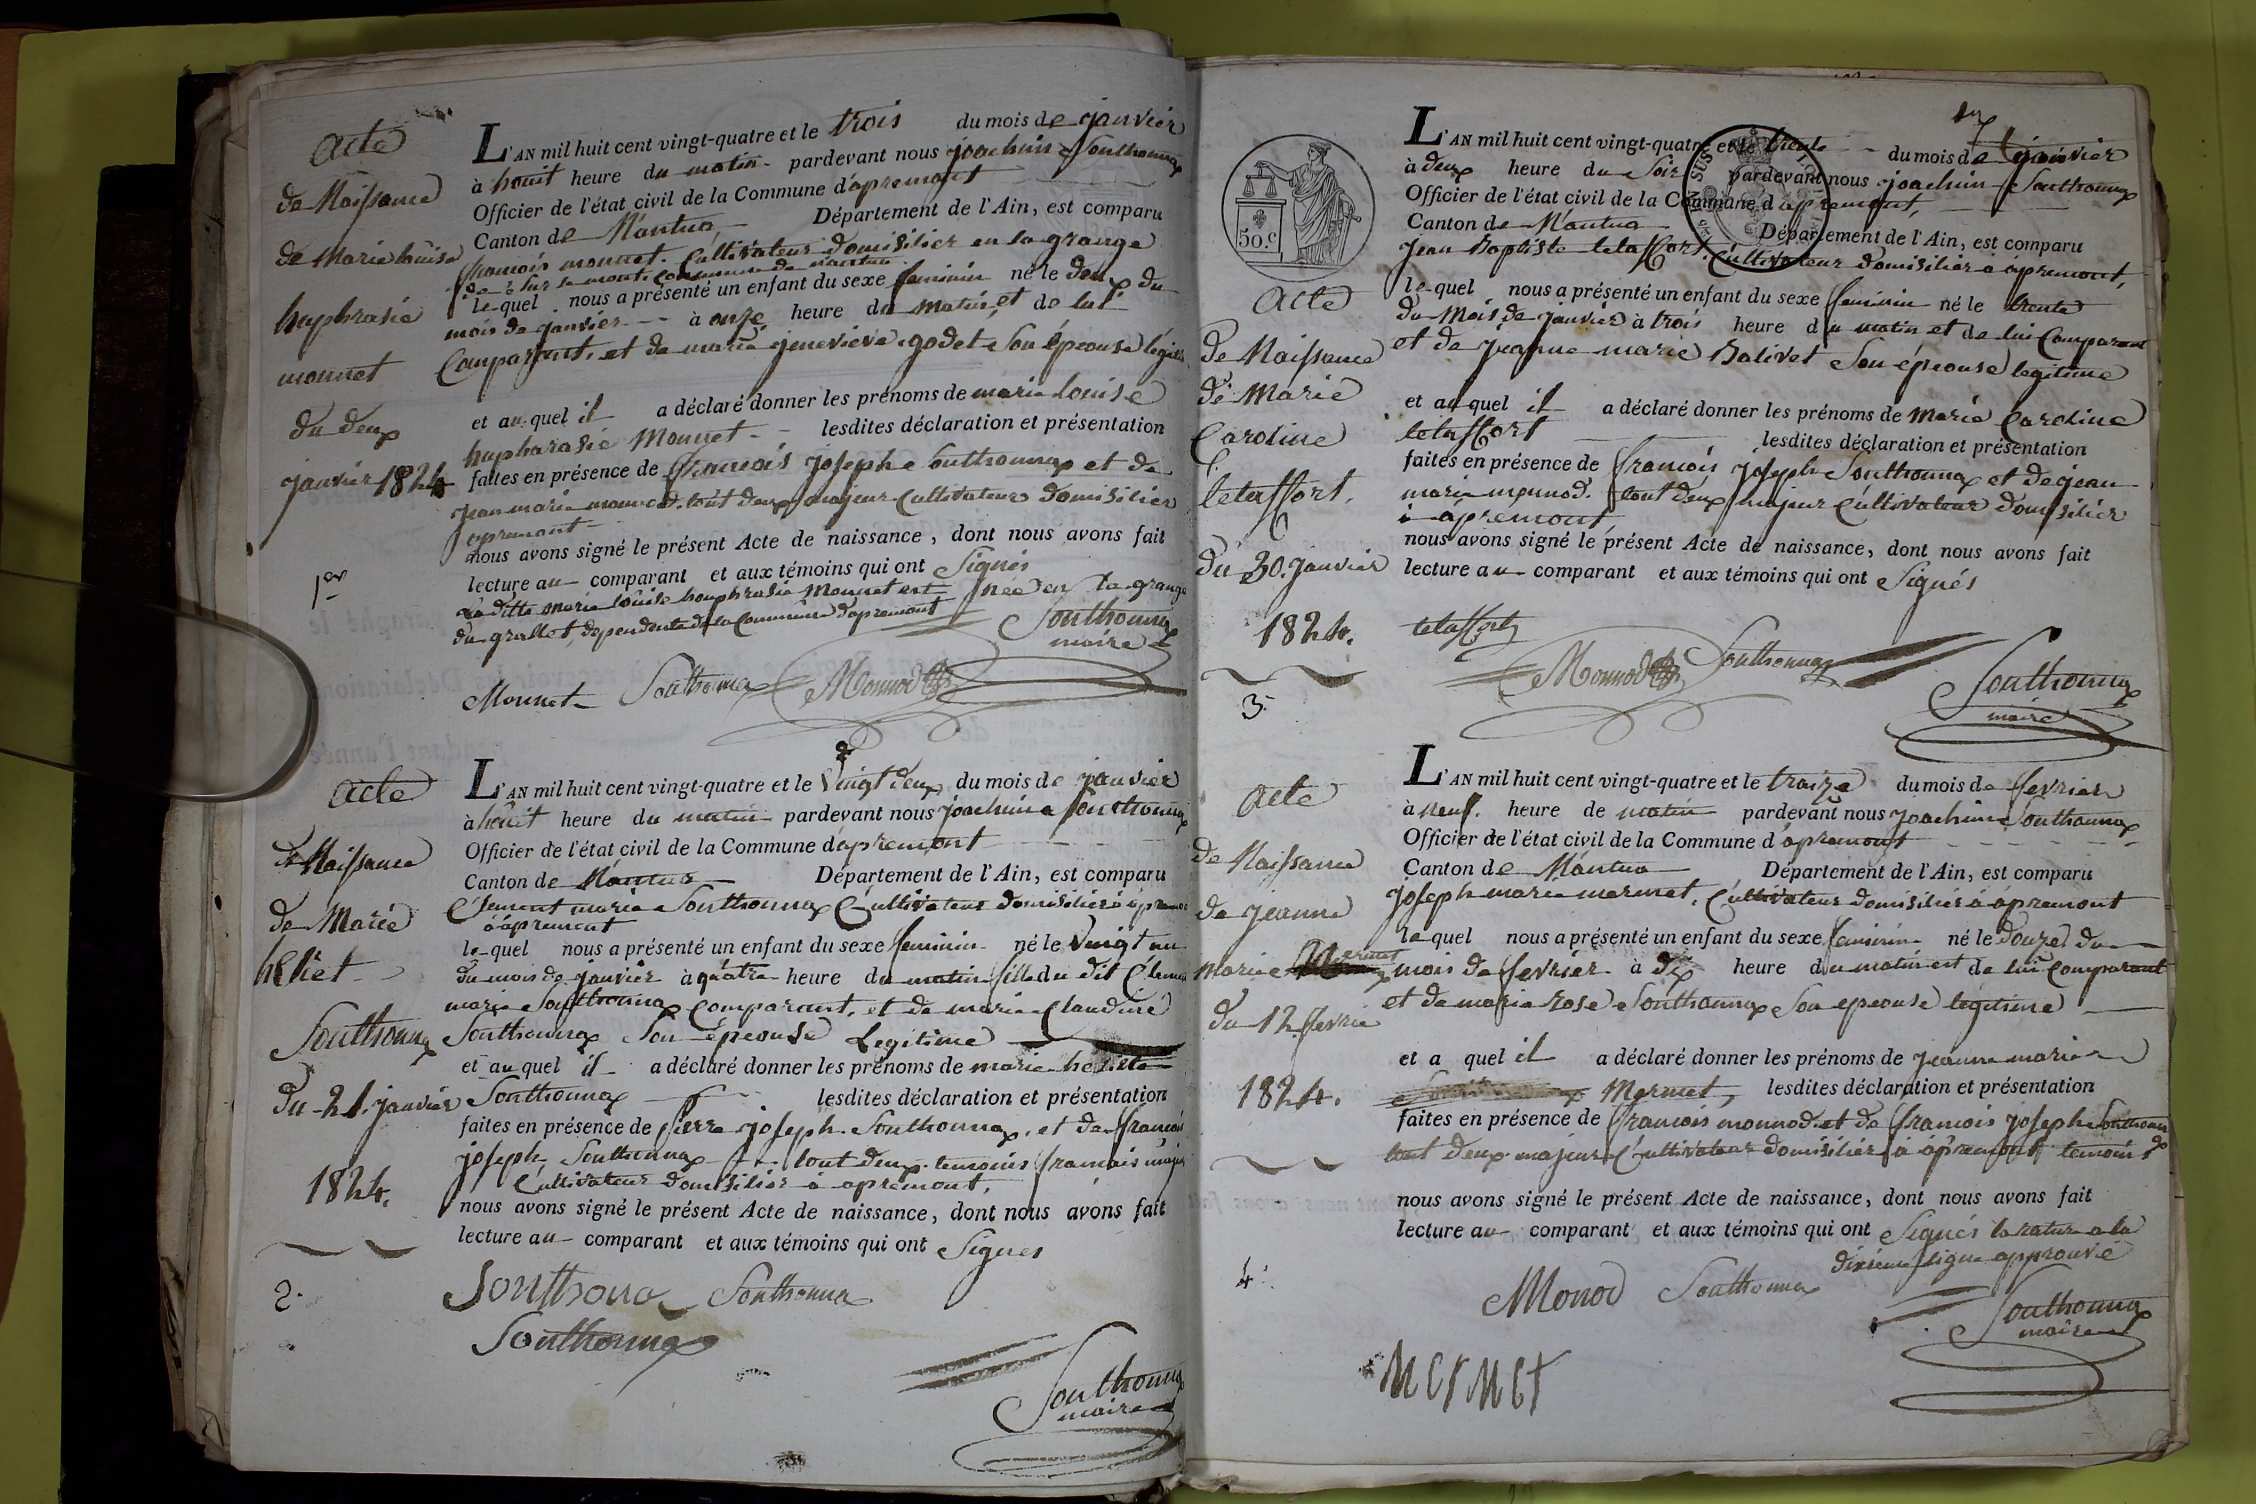 acte
de Naissance
de Marie louise
huphrasie
monnet
du deux
janvier 1824
1er
L'AN mil huit cent vingt-quatre et le trois du mois de janvier
à houit heure du matin pardevant nous joachim Southonnax
Officier de l'état civil de la Commune d'apremont
Canton de Nantua Département de l'Ain, est comparu
francois monnet. Cultivateur domisilier en la grange
de sur le mont, Commune de nantua
le-quel nous a présenté un enfant du sexe feminin né le deux du
mois de janvier à onze heure du matin, et de lui
Comparant, et de marie jenevieve godet Son épeouse légit
et au-quel il a déclaré donner les prénoms de marie louise
huphrasie Monnet lesdites déclaration et présentation
faites en présence de francois joseph Southonnax et de
jean marie monnod. tout deux majeur Cultivateur domisilier
apremont
nous avons signé le présent Acte de naissance, dont nous avons fait
lecture au comparant et aux témoins qui ont Signés
la ditte marie louise houphrasie Monnet est née en la grange
du grallet, dependente de la Commune dapremont
Southonnax
maire
Monnet Southonnax Monnod
acte
de Naissance
de Marie
heliet
Southonnax
du 21. janvier
1824.
2.
2
L'AN mil huit cent vingt-quatre et le vingt deux du mois de janvier
à houit heure du matin pardevant nous joachim Southonnax
Officier de l'état civil de la Commune d'apremont
Canton de Nantua Département de l'Ain, est comparu
Clement marie Southonnax Cultivateur domisilier à apremon
à apremont
le-quel nous a présenté un enfant du sexe feminin né le vingt un
du mois de janvier à quatre heure du matin fille du dit Clement
marie Southonnax Comparant, et de marie Claudine
Southonnax Son épeouse Legitime
et au quel il a déclaré donner les prénoms de marie
Southonnax lesdites déclaration et présentation
faites en présence de pierre joseph Southonnax, et de francois
joseph Southonnax tout deux temoins francais majeur
Cultivateur domisilier à apremont,
nous avons signé le présent Acte de naissance, dont nous avons fait
lecture au comparant et aux témoins qui ont Signes
Southona Southonnax
Southonnax
Southonnax
maire
50.c
acte
de Naissance
de Marie
Caroline
letaffort.
du 30. janvier
1824.
3.
L'AN mil huit cent vingt-quatre et le trente du mois de janvier
à deux heure du Soir pardevant nous joachim Southonnax
Officier de l'état civil de la Commune d'apremont,
Canton de Nantua Département de l'Ain, est comparu
Jean Baptiste letaffort. Cultivateur domisilier à apremont,
le quel nous a présenté un enfant du sexe feminin né le trente
du Mois de janvier à trois heure du matin et de lui Comparant
et de jeanne marie Balivet Son épeouse legitime
et au quel il a déclaré donner les prénoms de Marie Caroline
letaffort lesdites déclaration et présentation
faites en présence de francois joseph Southonnax et de jean
marie monnod. tout deux majeur Cultivateur domisilier
à apremont
nous avons signé le présent Acte de naissance, dont nous avons fait
lecture au comparant et aux témoins qui ont Signés
letaffort
Monnod Southonnax
Southonnax
maire
acte
de Naissance
de jeanne
marie mermet
du 12. fevrie
1824.
4.
L'AN mil huit cent vingt-quatre et le traize du mois de fevrier
à neuf. heure de matin pardevant nous joachim Southonnax
Officier de l'état civil de la Commune d'apremont
Canton de Nantua Département de l'Ain, est comparu
joseph marie mermet. Cultivateur domisilier à apremont
le quel nous a présenté un enfant du sexe feminin né le douze du
mois de fevrier à dix heure du matin et de lui Comparant
et de marie rose Southonnax Son épeouse legitime
et a quel il a déclaré donner les prénoms de jeanne marie
Mermet, lesdites déclaration et présentation
faites en présence de francois monnod. et de francois joseph Southonnax
tout deux majeur Cultivateur domisilier à apremont temoint
nous avons signé le présent Acte de naissance, dont nous avons fait
lecture au comparant et aux témoins qui ont Signés la rature a la
dixieme ligne approuvé
Monod Southonnax
Southonnax
maire
MerMet